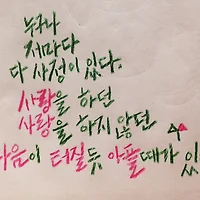 누구나
저마다
다 사정이 있다.
사랑을 하던
사랑을 하지 않던
마음이 터질듯 아플때가 있